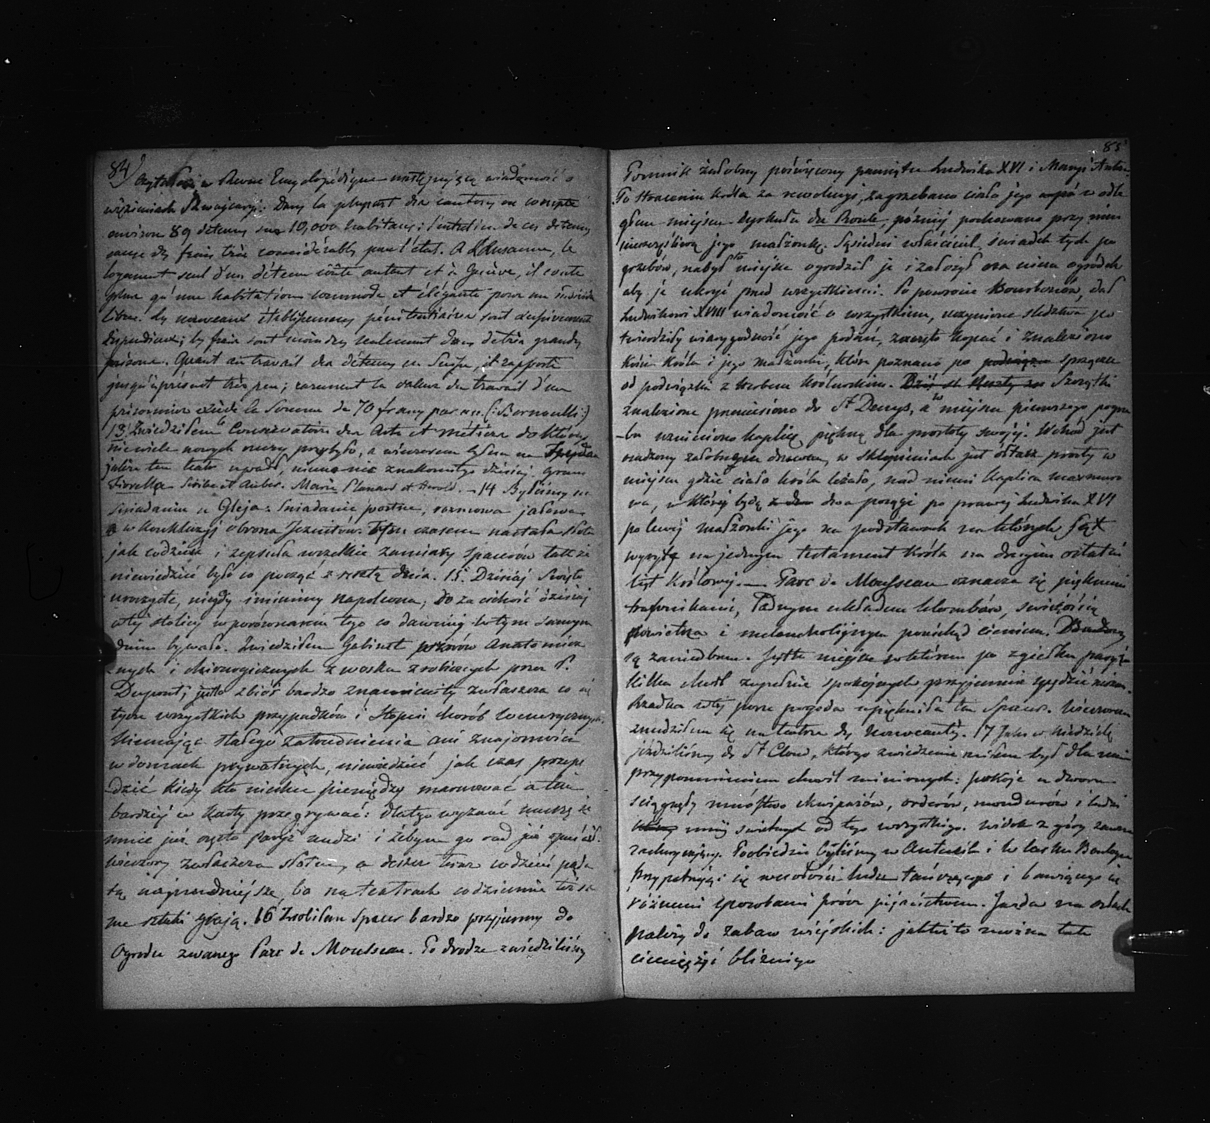 84
Czytałem w Revue Encyclopédique następującą wiadomość o
więzieniach Szwajcarii: Dans la plupart des cantons on compte
environ 89 détenus sur 10,000 habitans; l'entretien de ces détenus
cause des frais très considérables pour l'état. A Lausanne, le
logement seul d'un détenu coûte autant et à Genève, il coute
plus qu'une habitation commode et élégante pour un individu
libre. Les nouveaux établissemens pénitentiaires sont excessivement
dispendieux; les frais sont moindres seulement dans de très grandes
prisons. Quant au travail des détenus en Suisse, il rapporte
jusqu'à présent très peu; rarement la valeur du travail d'un
prisonnier excède la somme de 70 francs par an. (: Bernoulli :)
13 Zwiedziłem Conservatoire des Arts et métiers do którego
niewiele nowych rzeczy przybyło, a wieczorem byłem na
jak ten teatr upadł, niema nic znakomitego dzisiaj grano
Fiorella Scribe et Auber. Marie Planard et Herold. – 14 Byliśmy na
śniadaniu u Gleja: śniadanie postne, rozmowa jałowa
a w konkluzji obrona Jezuitów. Tym czasem nastała słota
jak codzień i zepsuła wszelkie zamiary spacerów tak że
niewiedzieć było co począć z resztą dnia. 15 Dzisiaj Święto
uroczyste, niegdy imieniny Napoleona, Co za cichość dzisiaj
całej stolicy w porównaniu tego co dawniej w tym samym
dniu bywało. Zwiedziłem Gabinet wzorów Anatomicz
nych i chirurgicznych z wosku zrobionych przez P.
Dupont; jestto zbiór bardzo znamienity zwłaszcza co się
tycze wszystkich przypadków i stopni chorób wenerycznych.
Niemając stałego zatrudnienia ani znajomości
w domach prywatnych, niewiedzieć jak czas przepę
dzić kiedy kto niechce pieniędzy marnować a tem
bardziej w karty przegrywać: dlatego wyznać muszę że
mnie już często Paryż nudzi i żebym go rad już opuścił.
Wieczory zwłaszcza słotne, a deszcz teraz codzień pada
są najnudniejsze, bo na teatrach codziennie też sa
me sztuki grają. 16 Zrobiłem spacer bardzo przyjemny do
Ogrodu zwanego Parc de Mousseau. Po drodze zwiedziliśmy
85
Pomnik żałobny poświęcony pamiątce Ludwika XVI i Maryi Anton.
Po straceniu Króla za rewolucyi, zagrzebano ciało jego w odle
głem miejscu dzielnicy du Roule, później pochowano przy nim
nieszczęśliwą jego małżonkę. Sąsiedni właściciel, świadek tych po
grzebów, nabył to miejsce ogrodził je i założył na niem ogródek
aby je ukryć przed wszystkiemi. Po powrocie Bourbonów, dał
Ludwikowi XVIII wiadomość o wszystkiem, uczynione śledztwo po
twierdziły wiarygodność jego podań, zaczęto kopać i znaleziono
kości Króla i jego małżonki, które poznano po sprzączce
od podwiązki z herbem królewskim. Szczątki
znalezione przeniesiono do St Denys, a to miejscu pierwszego pogrze
bu wzniesiono kaplicę piękną dla prostoty swojej. Wchód jest
sadzony żałobnym drzewem, w sklepieniach jest ołtarz prosty w
miejscu gdzie ciało króla leżało, nad niemi kaplica marmuro
wa, w której będą dwa posągi po prawej Ludwika XVI
po lewej małżonki jego na podstawach na których jest
wyryty na jednym testament Króla na drugim ostatni
list Królowej. – Parc de Mousseau oznacza się pięknemi
trafnikami, ładnym układem klombów, świeżością
powietrza i melancholijnym pomiędzy cieniem.
są zaniedbane. Jestto miejsce w którem po zgiełku paryzk.
kilka chwil zupełnie spokojnych przyjemnie spędzić można.
Rzadka tej porze pogoda upiększała ten spacer. Wieczorem
znudziłem się na teatrze des Nouveautés. 17 Jako w niedzielę
jeździliśmy do St Cloud, którego zwiedzenie miłem był dla mnie
przypomnieniem chwil minionych: pokoje u dworu
ściągnęły mnóstwo ekwipażów, orderów, mundurów i ludzi
mniej świetnych od tego wszystkiego. Widok z góry zawsze
zachwycający. Poobiedzie byliśmy w Auteuil i w lasku Boulogne
przypatrując się wesołości ludu tańczącego i bawiącego się
różnemi sposobami prócz pijaństwem. Jazda na osłach
należy do zabaw wiejskich: jakżeto można tak
ciemiężyć bliźniego